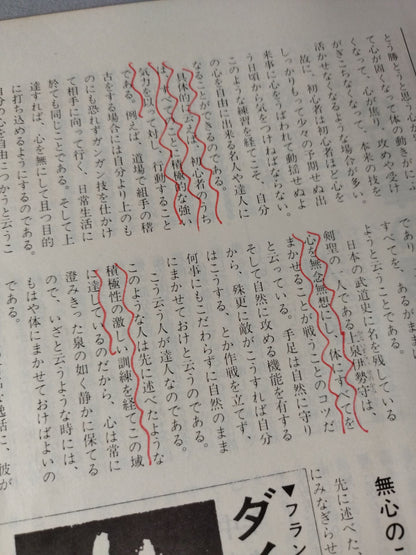 とう勝とうと思う
て心が固くなって、体の動きに
くなって、心が焦り、攻めや受け
がぎこちなくなって、本来の技を
活かせなくなるような場合が多い。
故に、初心者は初心者ほど心を
しっかりもって少々の予期せぬ出
来事に心をうばわれて動揺せぬよ
う日頃から気をつけねばならない。
このような練習を経てこそ、自分
の心を自由に出来る名人や達人に
なることができるのである。
具体的に云えば、初心者のうち
は、すべてのことに積極的な強い
気力を以って対し、行動すること
である。例えば、道場で組手の稽
古をする場合には自分より上のも
のにも恐れずガンガン技を仕かけ
て相手に向って行く、日常生活に
於ても同じことである。そして上
達すれば、心を無にして且つ目的
に打ち込めるようにするのである。
自分の心を自由につかうと云うこ
であり
すべてを、
ようと云うことである。
日本の武道史に名を残している
剣聖の一人である上泉伊勢守は、
心を無念無想にし、体にすべてを
まかせることが戦うことのコツだ
と云っている。手足は自然に守り
そして自然に攻める機能を有する
から、殊更に敵がこうすれば自分
はこうする、とか作戦を立てず、
何事にもこだわらずに自然のまま
にまかせておけと云うのである。
こう云う人が達人なのである。
このような人は先に述べたような
積極性の激しい訓練を経てこの域
に達しているのだから、心は常に
澄みきった泉の如く静かに保てる
ので、いざと云うような時には、
もはや体にまかせておけばよいの
である。
逸話に、彼が
無心の
先に述べた、
にみなぎらせ
▼フラン
ダイ